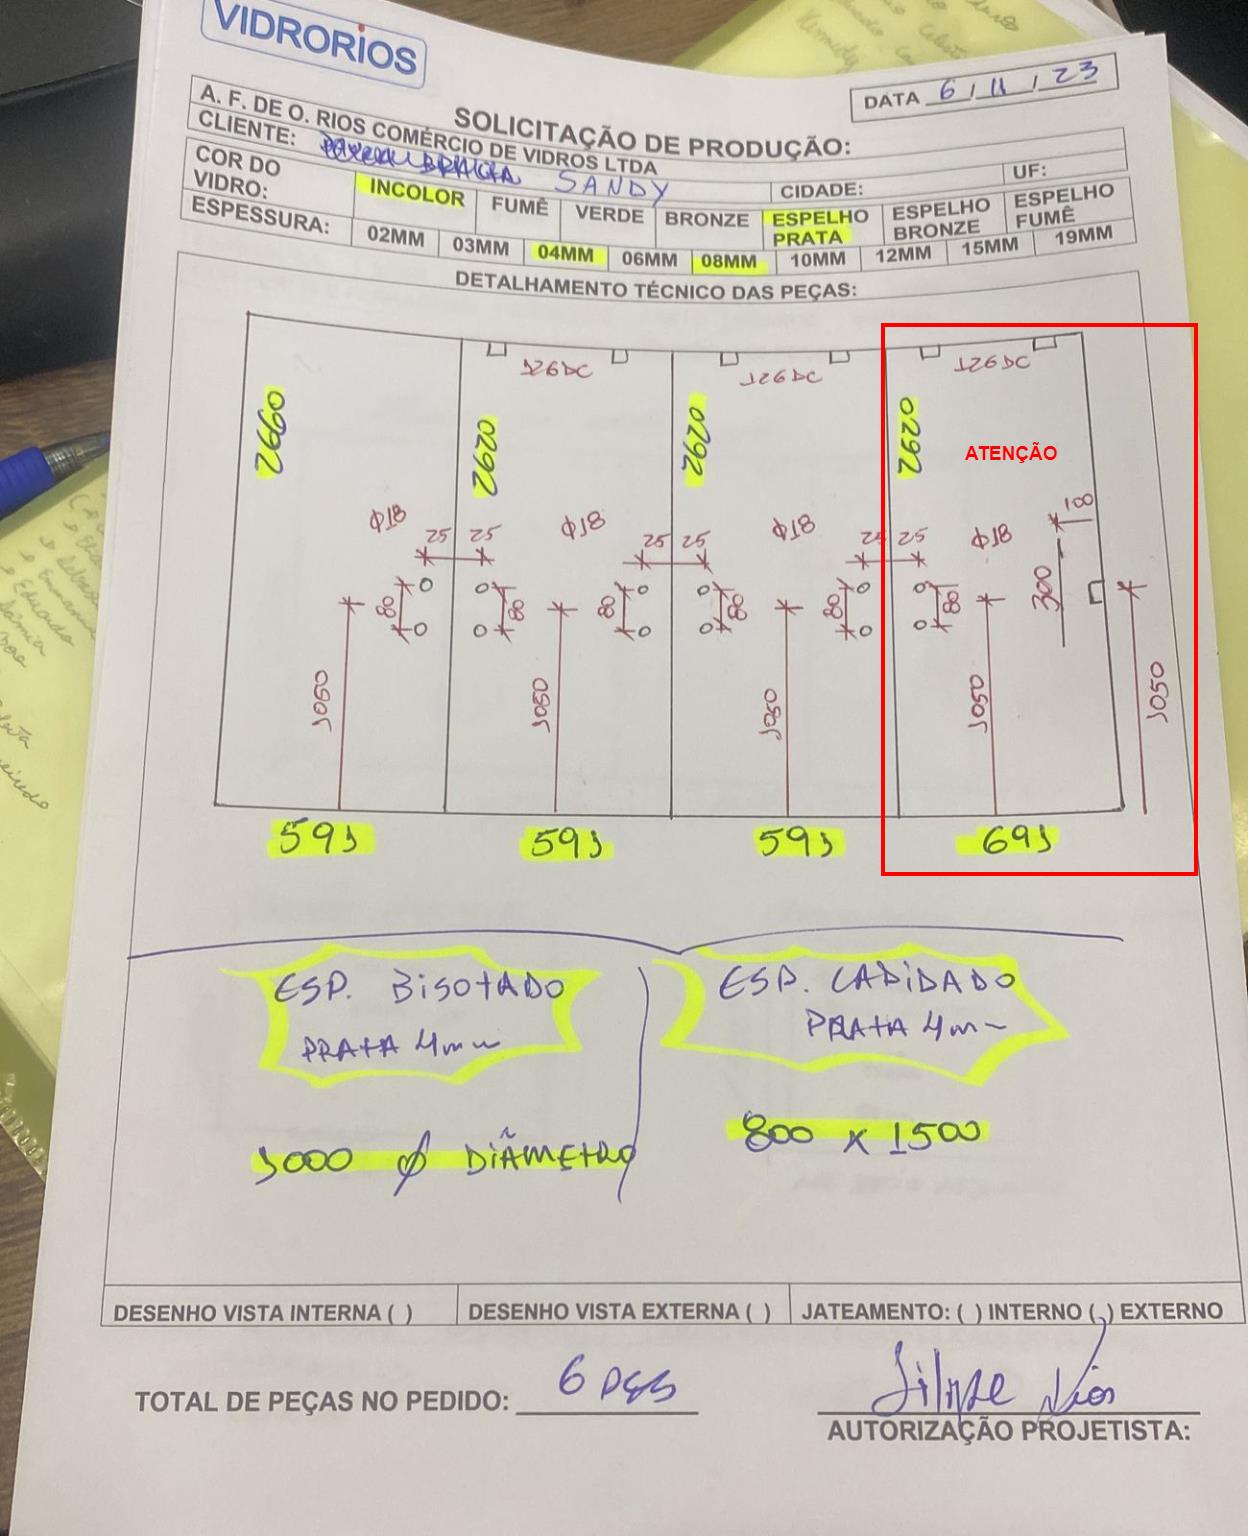 VIDRORIOS
DATA 6 / 11 / 23
SOLICITAÇÃO DE PRODUÇÃO:
A. F. DE O. RIOS COMÉRCIO DE VIDROS LTDA
CLIENTE: SANDY
CIDADE:
UF:
COR DO VIDRO:
INCOLOR
FUMÊ
VERDE
BRONZE
ESPELHO PRATA
ESPELHO BRONZE
ESPELHO FUMÊ
ESPESSURA:
02MM
03MM
04MM
06MM
08MM
10MM
12MM
15MM
19MM
DETALHAMENTO TÉCNICO DAS PEÇAS:
126DC
126DC
126DC
2660
2620
2620
2620
ATENÇÃO
Φ18
Φ18
Φ18
Φ18
100
25 25
25 25
25 25
80
80
80
80
80
80
300
1050
1050
1050
1050
1050
591
591
591
691
ESP. BISOTADO
PRATA 4mm
ESP. LAPIDADO
PRATA 4mm
1000 Ø DIÂMETRO
800 X 1500
DESENHO VISTA INTERNA ( )
DESENHO VISTA EXTERNA ( )
JATEAMENTO: ( ) INTERNO ( ) EXTERNO
TOTAL DE PEÇAS NO PEDIDO: 6 PÇS
Filipe Rios
AUTORIZAÇÃO PROJETISTA: